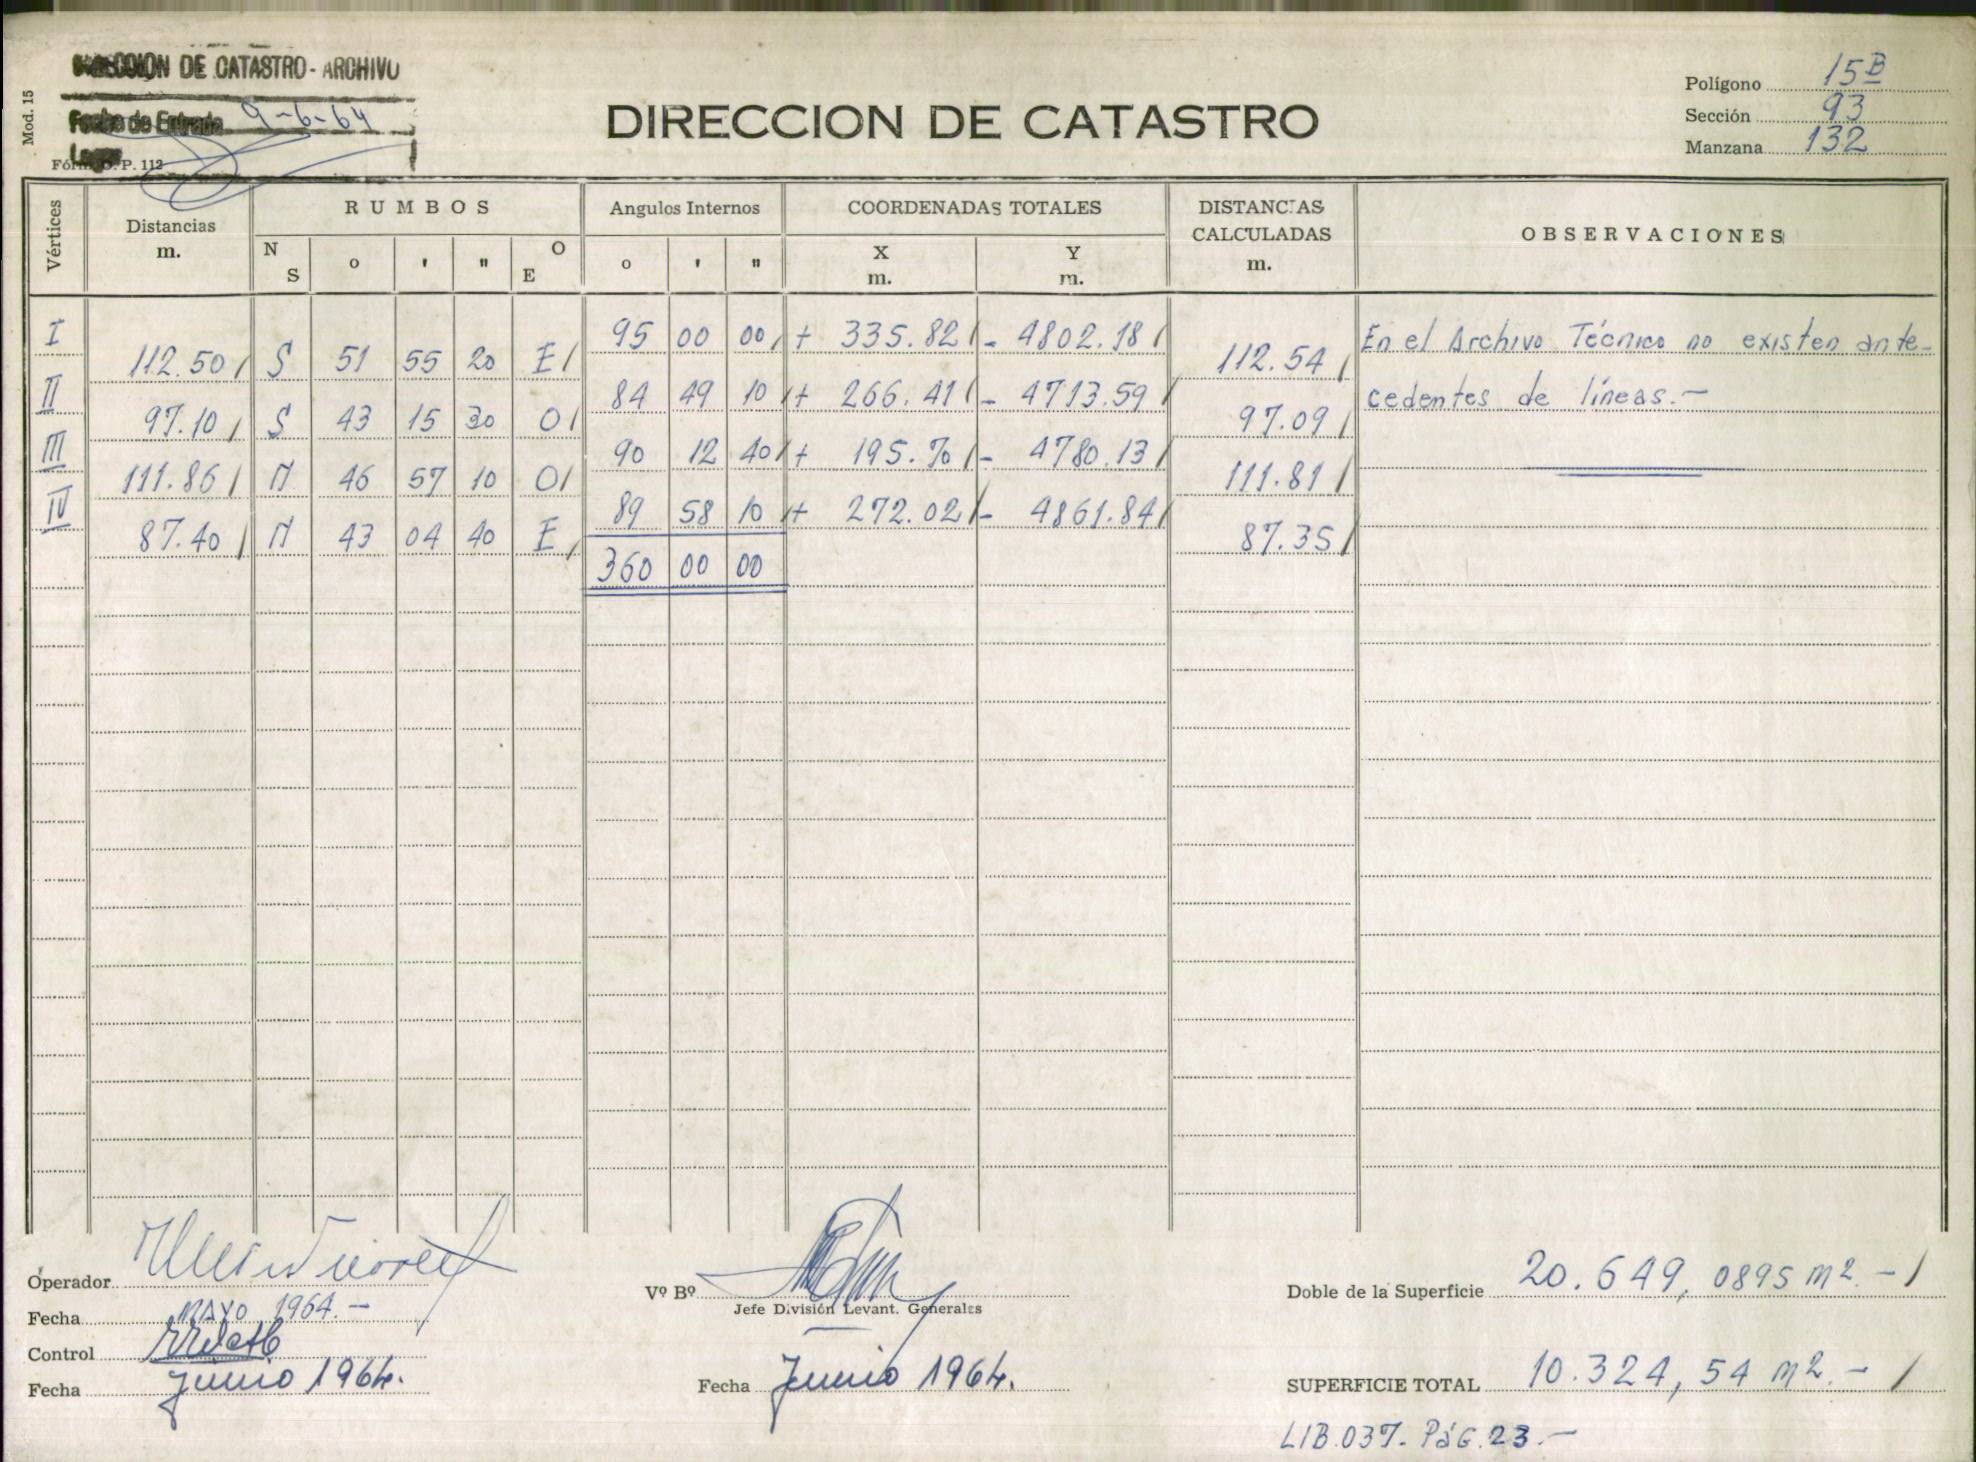 DIRECCION DE CATASTRO - ARCHIVO
Fecha de Entrada 9-6-64
Mod. 15
Fórm. O. P. 112
DIRECCION DE CATASTRO
Polígono 15B
Sección 93
Manzana 132
Vértices
Distancias
m.
RUMBOS
N S o ' " O E
Angulos Internos
o ' "
COORDENADAS TOTALES
X m. Y m.
DISTANCIAS CALCULADAS
m.
OBSERVACIONES
I 95 00 00 + 335.82 - 4802.18
112.50 S 51 55 20 E 112.54
II 84 49 10 + 266.41 - 4713.59
97.10 S 43 15 30 O 97.09
III 90 12 40 + 195.70 - 4780.13
111.86 N 46 57 10 O 111.81
IV 89 58 10 + 272.02 - 4861.84
87.40 N 43 04 40 E 87.35
360 00 00
En el Archivo Técnico no existen ante-
cedentes de líneas.-
Operador
Fecha MAYO 1964.-
Control
Fecha Junio 1964.
Vº Bº
Jefe División Levant. Generales
Fecha Junio 1964.
Doble de la Superficie 20.649,0895 m2.-
SUPERFICIE TOTAL 10.324,54 m2.-
LIB.037. PáG.23.-